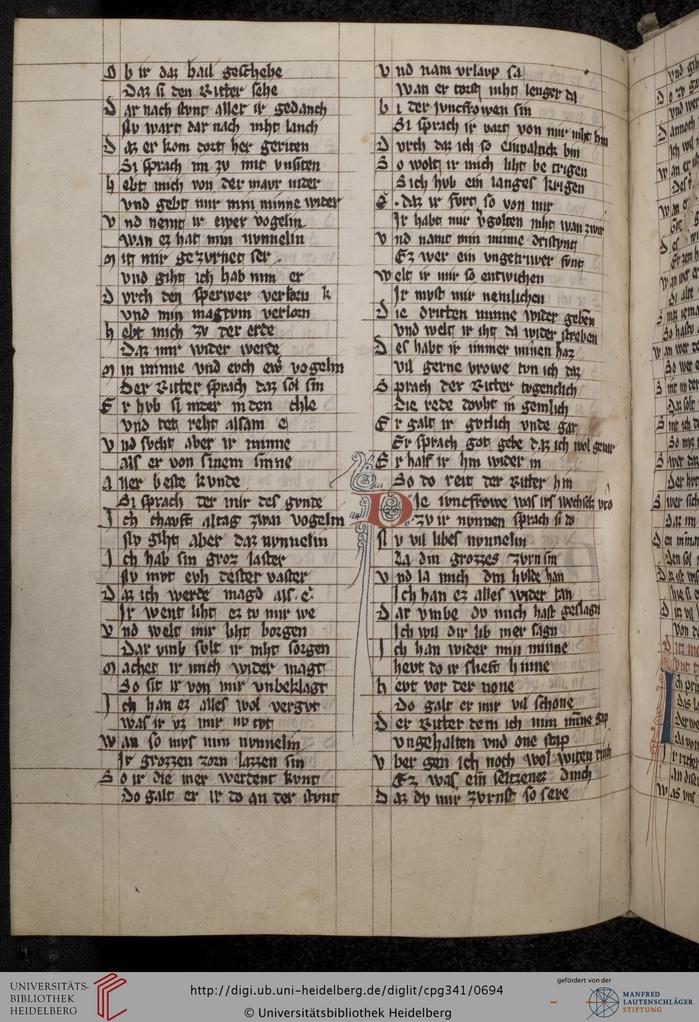 O b ir daz hail geschehe
Daz si den Ritter sehe
D ar nach stvnt aller ir gedanch
Nv wart dar nach niht lanch
D az er kom dort her geriten
Si sprach im zv mit vnsiten
h ebt mich von der mavr nider
vnd gebt mir min minne wider
V nd nemt ir ewer vogelin
Wan ez hat min nvnnelin
M it mir gezvrnet ser
vnd giht ich hab nim er
D vrch den sperwer verlorn
vnd min magtvm verlorn
h ebt mich zv der erde
Daz mir wider werde
M in minne vnd evch ewr vogelin
Der Ritter sprach daz sol sin
E r hvb si nider in den chle
vnd tet reht alsam e
V nd svcht aber ir minne
als er von sinem sinne
A ller beste kvnde
Si sprach der mir des gvnde
I ch chavft altag zwai vogelin
Nv giht aber daz nvnnelin
I ch hab sin groz laster
Nv mvt evh dester vaster
D az ich werde magd als e
Ir went liht ez tv mir we
V nd welt mir liht borgen
Dar vmb svlt ir niht sorgen
M achet ir mich wider magt
So sit ir von mir vnbeklagt
I ch han ez alles wol vergvt
Was ir vz mir nv tvt
W an so mvs min nvnnelin
Ir grozzen zorn lazzen sin
S o ir die mer werdent kvnt
Do galt er ir do an der stvnt
V nd nam vrlavp sa
Wan er torst niht lenger da
b i der ivncfrowen sin
Si sprach ir vart von mir niht hin
D vrch daz ich so einvaltick bin
S o wolt ir mich liht be trigen
Sich hvb ein langes krigen
E . daz ir fvrt so von mir
Ir habt mir vgolten niht wan zwir
V nd namt min minne dristvnt
Ez wer ein vngetriwer fvnt
W elt ir mir so entwichen
Ir mvst mir nemlichen
D ie dritten minne wider geben
vnd welt ir iht da wider streben
D es habt ir immer minen haz
vil gerne vrowe tvn ich daz
S prach der Ritter tvgentlich
Die rede dovht in gemlich
E r galt ir gvtlich vnde gar
Er sprach got gebe daz ich wol gevar
E r half ir hin wider in
So do reit der Ritter hin
D ie ivncfrowe was irs wechsels vro
zv ir nvnnen sprach si do
N v vil libes nvnnelin
La din grozzes zvrn sin
V nd la mich din hvlde han
Ich han ez alles wider tan
D ar vmbe dv mich hast geslagn
Ich wil dir lib mer sagn
I ch han wider min minne
hevt do ir slieft hinne
h evt vor der none
Do galt er mir vil schone
D er Ritter dem ich min minne gap
vngehalten vnd one stap
V ber gen ich noch wol witen
Ez was ein seltzenez dinch
D az dv mir zvrnst so sere
UNIVERSITÄTS-
BIBLIOTHEK
HEIDELBERG
http://digi.ub.uni-heidelberg.de/diglit/cpg341/0694
© Universitätsbibliothek Heidelberg
gefördert von der
MANFRED
LAUTENSCHLÄGER
STIFTUNG